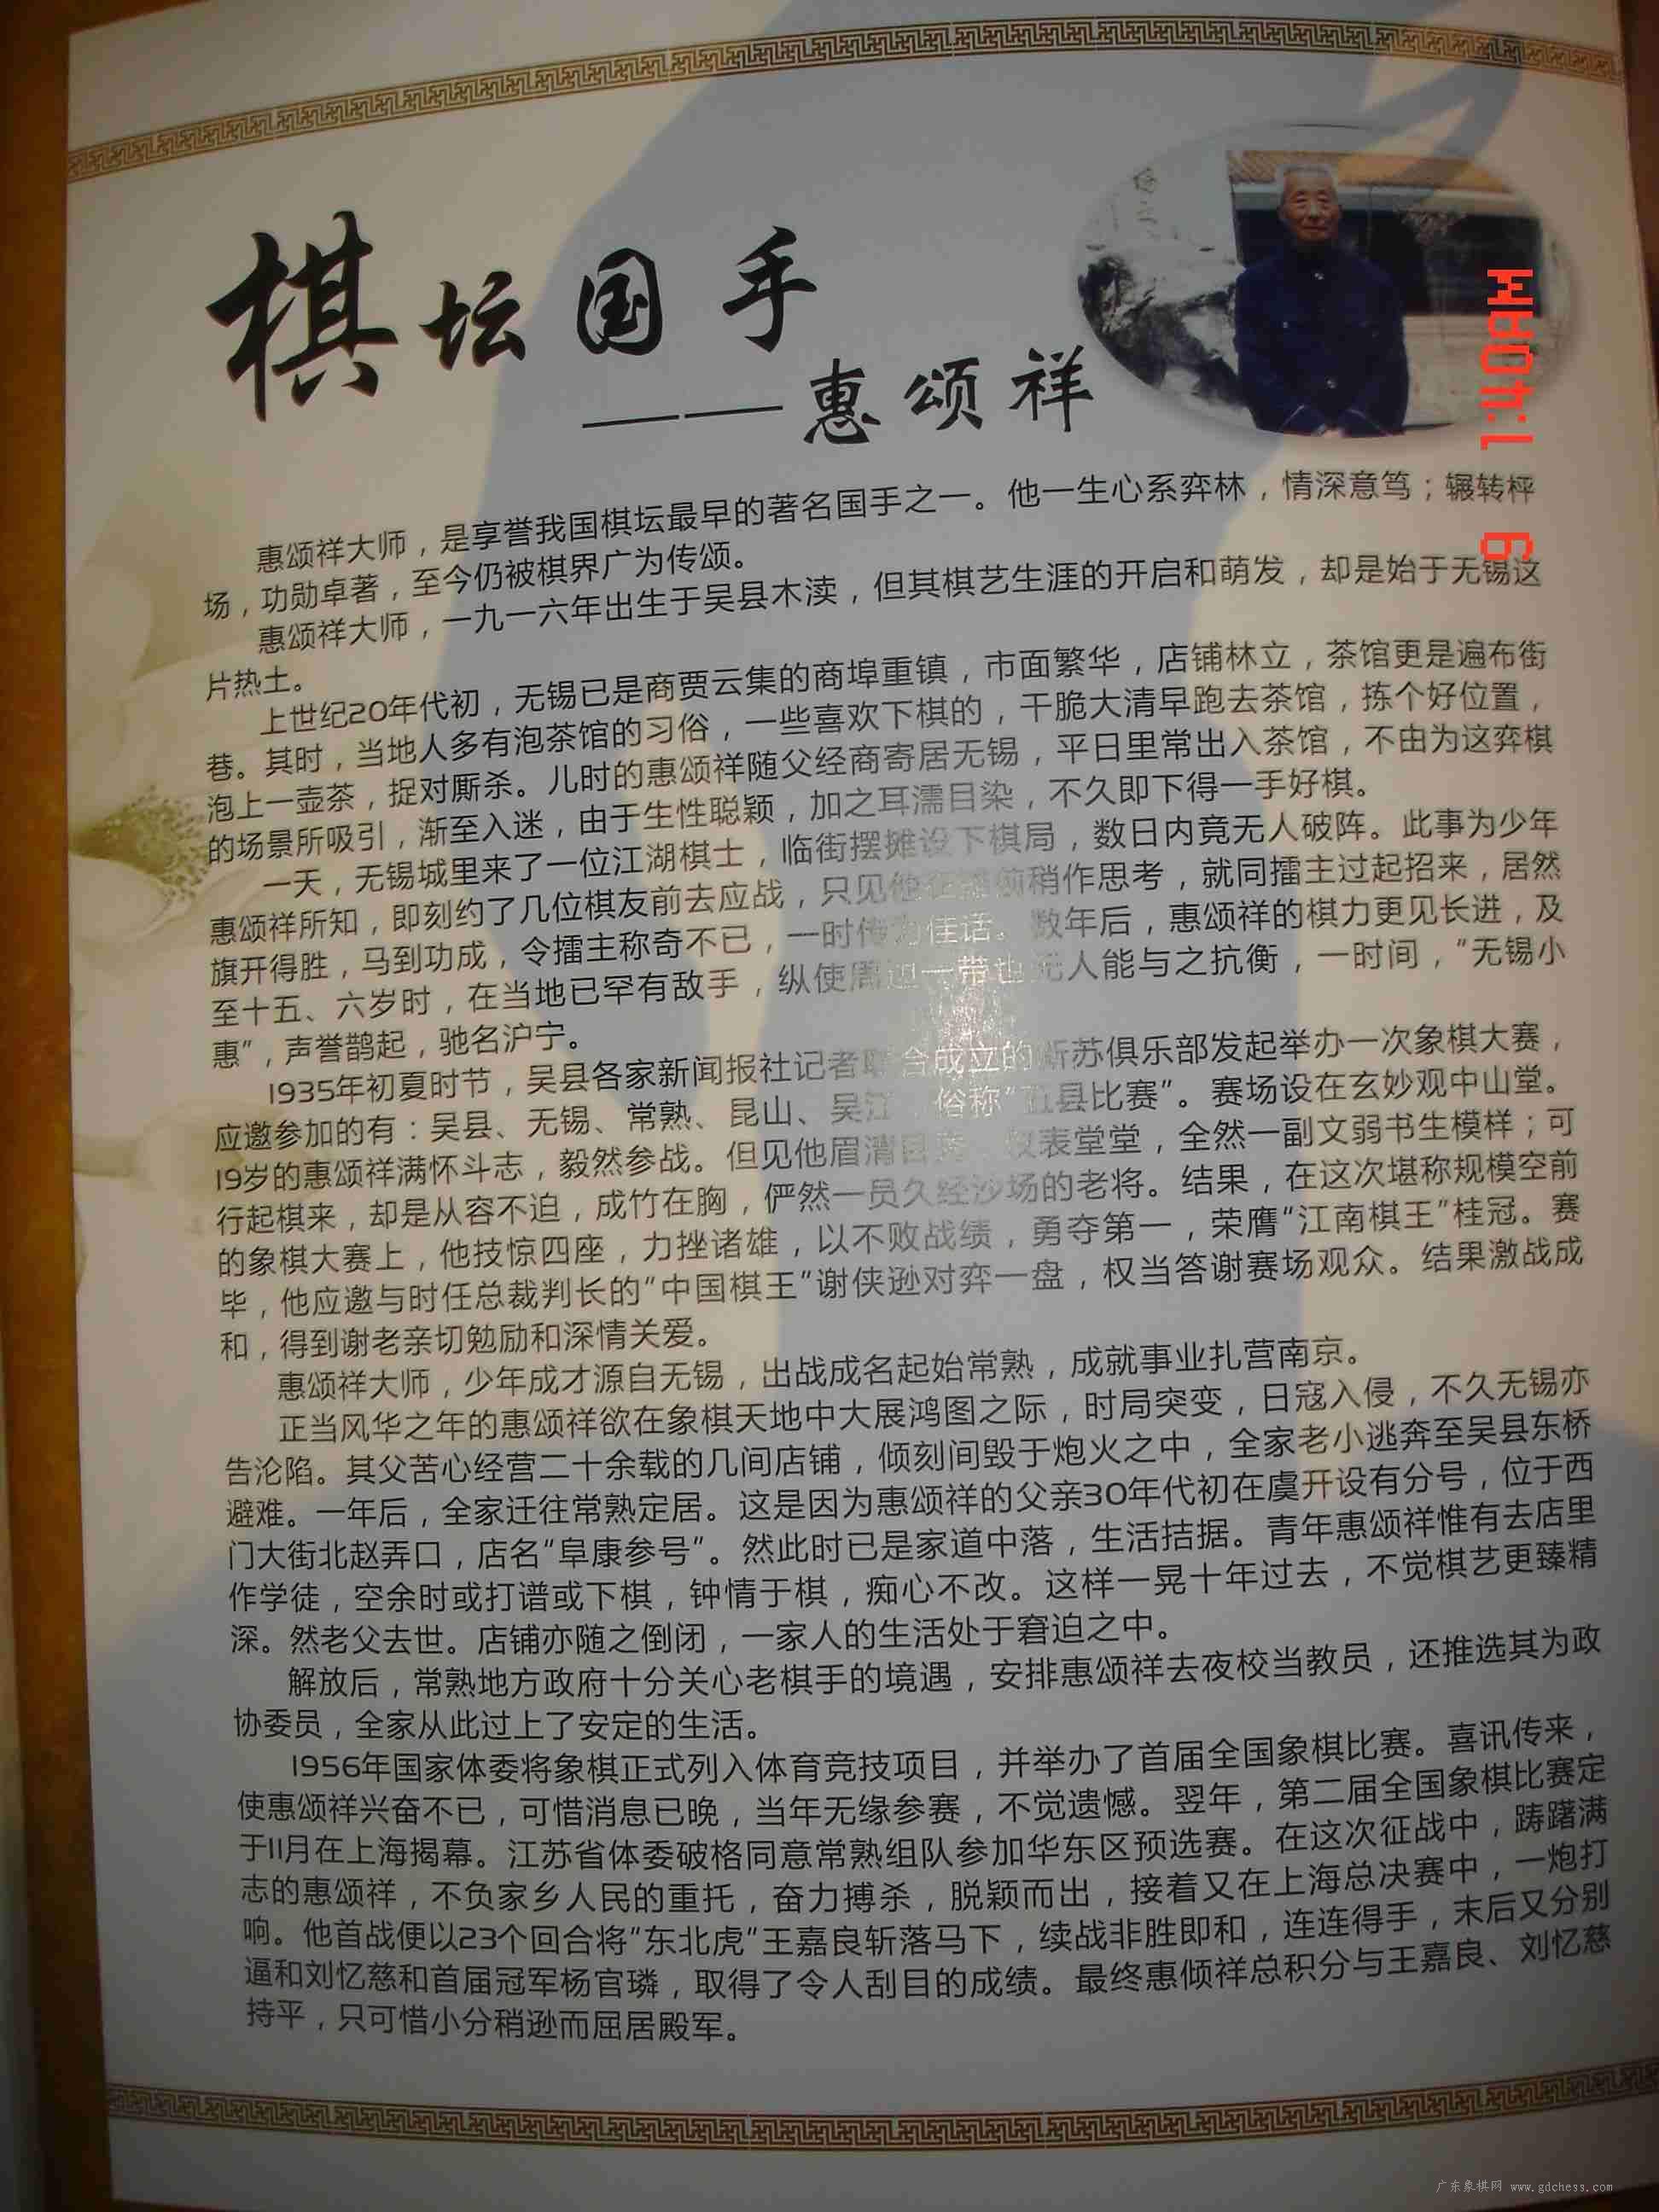 棋坛国手
——惠颂祥
惠颂祥大师，是享誉我国棋坛最早的著名国手之一。他一生心系弈林，情深意笃；辗转枰
场，功勋卓著，至今仍被棋界广为传颂。
惠颂祥大师，一九一六年出生于吴县木渎，但其棋艺生涯的开启和萌发，却是始于无锡这
片热土。
上世纪20年代初，无锡已是商贾云集的商埠重镇，市面繁华，店铺林立，茶馆更是遍布街
巷。其时，当地人多有泡茶馆的习俗，一些喜欢下棋的，干脆大清早跑去茶馆，拣个好位置，
泡上一壶茶，捉对厮杀。儿时的惠颂祥随父经商寄居无锡，平日里常出入茶馆，不由为这弈棋
的场景所吸引，渐至入迷，由于生性聪颖，加之耳濡目染，不久即下得一手好棋。
一天，无锡城里来了一位江湖棋士，临街摆摊设下棋局，数日内竟无人破阵。此事为少年
惠颂祥所知，即刻约了几位棋友前去应战，只见他稍作思考，就同擂主过起招来，居然
旗开得胜，马到功成，令擂主称奇不已，一时传为佳话。数年后，惠颂祥的棋力更见长进，及
至十五、六岁时，在当地已罕有敌手，纵使周边一带也无人能与之抗衡，一时间，“无锡小
惠”，声誉鹊起，驰名沪宁。
1935年初夏时节，吴县各家新闻报社记者联合成立的新苏俱乐部发起举办一次象棋大赛，
应邀参加的有：吴县、无锡、常熟、昆山、吴江，俗称“五县比赛”。赛场设在玄妙观中山堂。
19岁的惠颂祥满怀斗志，毅然参战。但见他眉清目秀，仪表堂堂，全然一副文弱书生模样；可
行起棋来，却是从容不迫，成竹在胸，俨然一员久经沙场的老将。结果，在这次堪称规模空前
的象棋大赛上，他技惊四座，力挫诸雄，以不败战绩，勇夺第一，荣膺“江南棋王”桂冠。赛
毕，他应邀与时任总裁判长的“中国棋王”谢侠逊对弈一盘，权当答谢赛场观众。结果激战成
和，得到谢老亲切勉励和深情关爱。
惠颂祥大师，少年成才源自无锡，出战成名起始常熟，成就事业扎营南京。
正当风华之年的惠颂祥欲在象棋天地中大展鸿图之际，时局突变，日寇入侵，不久无锡亦
告沦陷。其父苦心经营二十余载的几间店铺，倾刻间毁于炮火之中，全家老小逃奔至吴县东桥
避难。一年后，全家迁往常熟定居。这是因为惠颂祥的父亲30年代初在虞开设有分号，位于西
门大街北赵弄口，店名“阜康参号”。然此时已是家道中落，生活拮据。青年惠颂祥惟有去店里
作学徒，空余时或打谱或下棋，钟情于棋，痴心不改。这样一晃十年过去，不觉棋艺更臻精
深。然老父去世。店铺亦随之倒闭，一家人的生活处于窘迫之中。
解放后，常熟地方政府十分关心老棋手的境遇，安排惠颂祥去夜校当教员，还推选其为政
协委员，全家从此过上了安定的生活。
1956年国家体委将象棋正式列入体育竞技项目，并举办了首届全国象棋比赛。喜讯传来，
使惠颂祥兴奋不已，可惜消息已晚，当年无缘参赛，不觉遗憾。翌年，第二届全国象棋比赛定
于11月在上海揭幕。江苏省体委破格同意常熟组队参加华东区预选赛。在这次征战中，踌躇满
志的惠颂祥，不负家乡人民的重托，奋力搏杀，脱颖而出，接着又在上海总决赛中，一炮打
响。他首战便以23个回合将“东北虎”王嘉良斩落马下，续战非胜即和，连连得手，末后又分别
逼和刘忆慈和首届冠军杨官璘，取得了令人刮目的成绩。最终惠倾祥总积分与王嘉良、刘忆慈
持平，只可惜小分稍逊而屈居殿军。
广东象棋网 www.gdchess.com